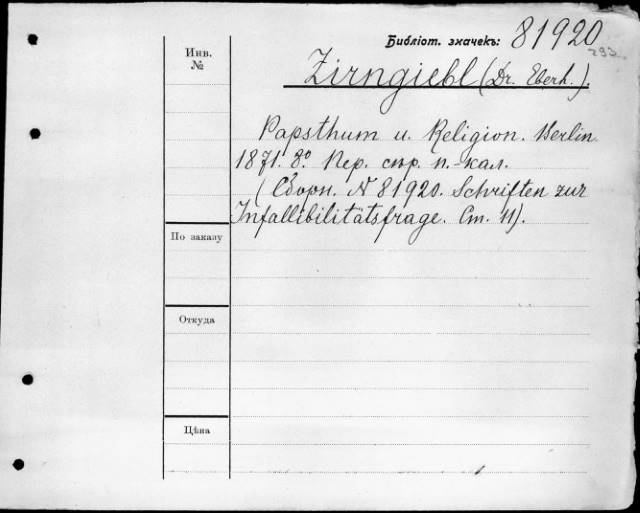 Библіот. значекъ: 81920
793
Инв.
№
Zirngiebl (Dr. Eberh.)
Papsthum u. Religion. Berlin
1871. 8º. Пер. сър. п.-кал.
(Сборн. N 81920. Schriften zur
Infallibilitätsfrage. Ст. 11).
По заказу
Откуда
Цѣна